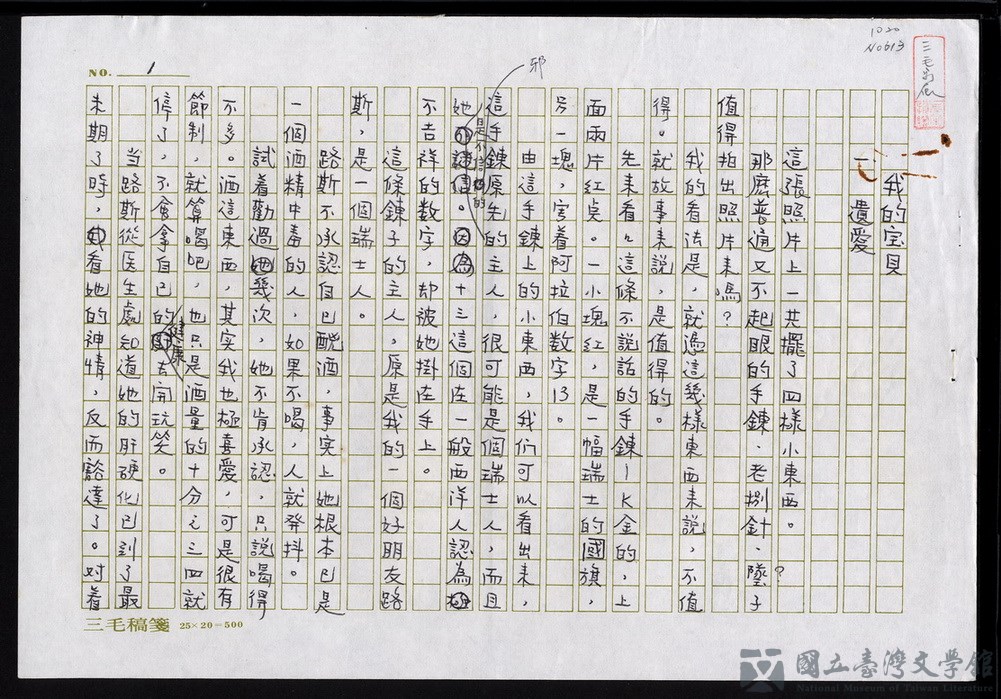 1020
No613
NO. 1
我的宝貝
遺愛
這張照片上一共擺了四樣小東西。
那麼普通又不起眼的手鍊、老捌針、墜子?
值得拍出照片來嗎?
我的看法是,就憑這幾樣東西來說,不值
得。就故事來說,是值得的。
先來看看這條不說話的手鍊—K金的,上
面兩片紅莫。一小塊紅,是一幅瑞士的國旗,
另一塊,寫着阿拉伯数字13。
由這手鍊上的小東西,我们可以看出来,
這手鍊原先的主人,很可能是個瑞士人,而且
她是不信邪的。十三這個在一般西洋人認為
不吉祥的数字,却被她掛在手上。
這條鍊子的主人,原是我的一個好朋友路
斯,是一個瑞士人。
路斯不承認自己酗酒,事实上她根本已是
一個酒精中毒的人,如果不喝,人就発抖。
試着勸過她幾次,她不肯承認,只說喝得
不多。酒這東西,其实我也極喜愛,可是很有
節制,就算喝吧,也只是酒量的十分之三四就
停了,不會拿自己的健康去開玩笑。
當路斯從医生處知道她的肝硬化已到了最
末期了時,看她的神情,反而豁達了。对着
三毛稿箋 25×20=500
國立臺灣文學館
National Museum of Taiwan Literature